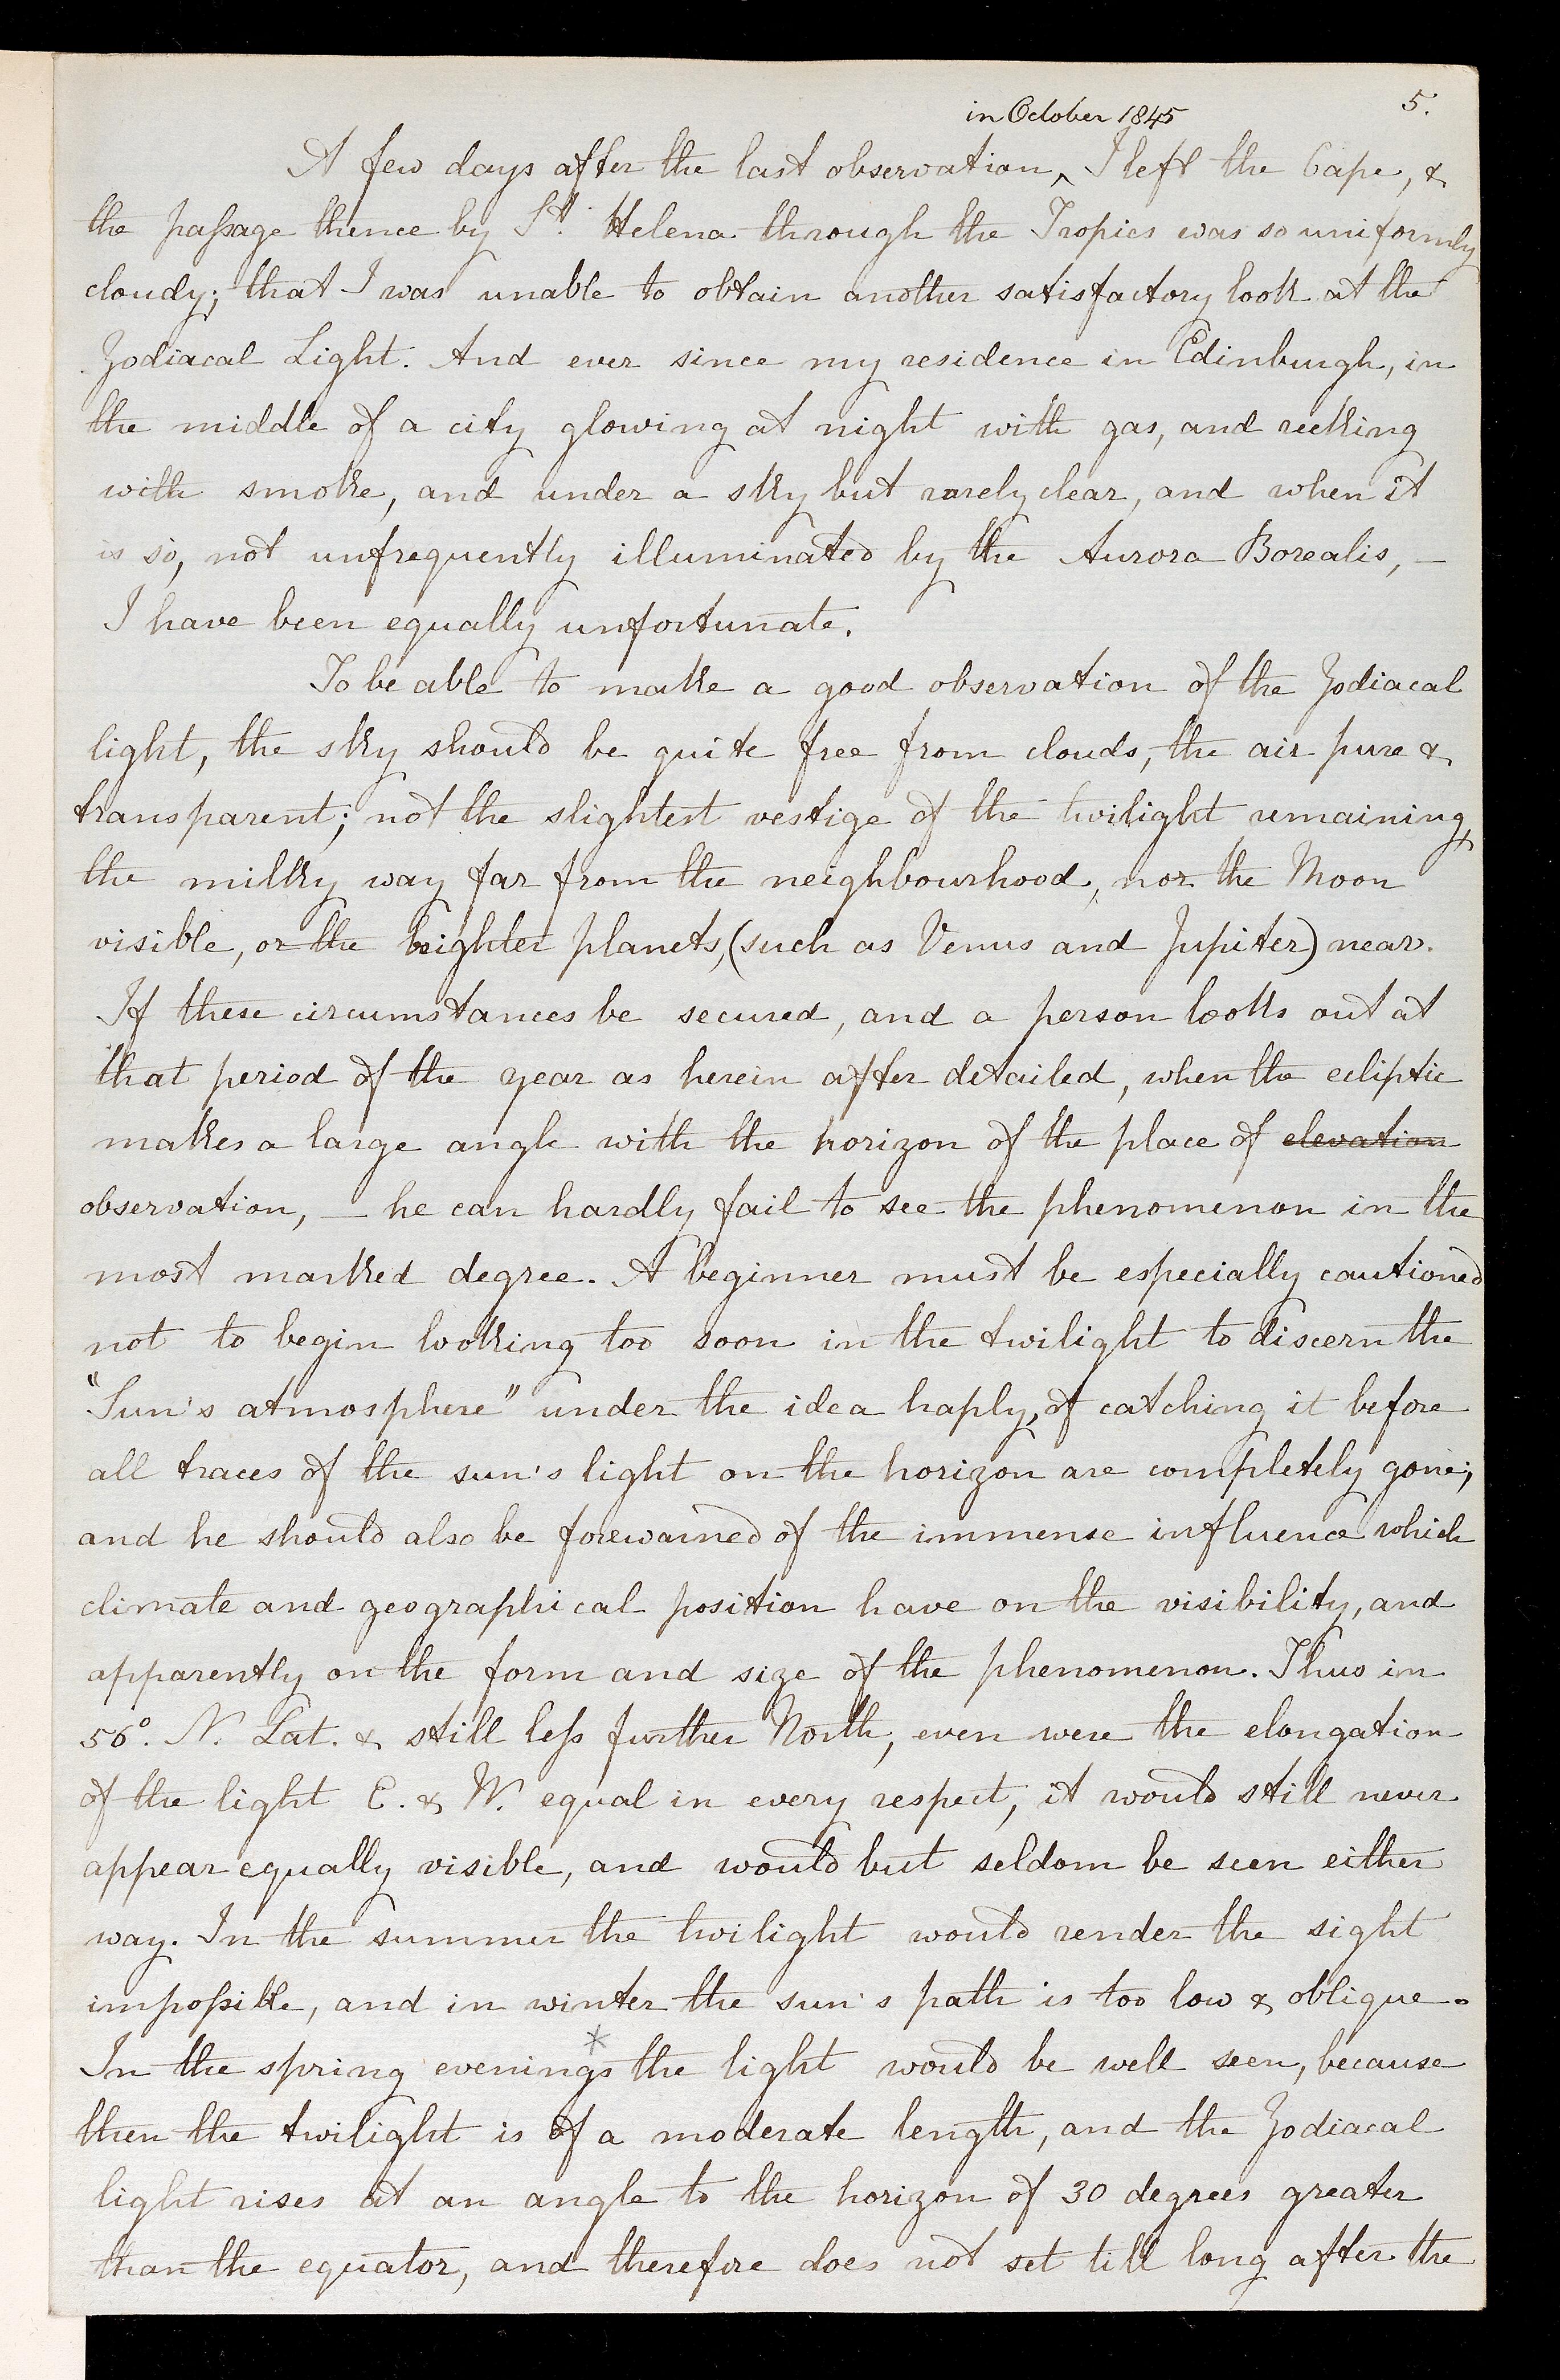 5.
in October 1845
A few days after the last observation, ^ I left the Cape, &
the passage thence by St. Helena through the Tropics was so uniformly
cloudy; that I was unable to obtain another satisfactory look at the
Zodiacal Light. And ever since my residence in Edinburgh, in
the middle of a city glowing at night with gas, and reeking
with smoke, and under a sky but rarely clear, and when it
is so, not unfrequently illuminated by the Aurora Borealis, —
I have been equally unfortunate.
To be able to make a good observation of the Zodiacal
light, the sky should be quite free from clouds, the air pure &
transparent; not the slightest vestige of the twilight remaining,
the milky way far from the neighbourhood, nor the Moon
visible, or the brighter planets, (such as Venus and Jupiter) near.
If these circumstances be secured, and a person looks out at
that period of the year as herein after detailed, when the ecliptic
makes a large angle with the horizon of the place of elevation
observation, — he can hardly fail to see the phenomenon in the
most marked degree. A beginner must be especially cautioned
not to begin looking too soon in the twilight to discern the
"Sun's atmosphere" under the idea haply, of catching it before
all traces of the sun's light on the horizon are completely gone;
and he should also be forewarned of the immense influence which
climate and geographical position have on the visibility, and
apparently on the form and size of the phenomenon. Thus in
56°. N. Lat. & still less further North, even were the elongation
of the light E. & W. equal in every respect, it would still never
appear equally visible, and would but seldom be seen either
way. In the summer the twilight would render the sight
impossible, and in winter the sun's path is too low & oblique.
In the spring evenings * the light would be well seen, because
then the twilight is of a moderate length, and the Zodiacal
light rises at an angle to the horizon of 30 degrees greater
than the equator, and therefore does not set till long after the